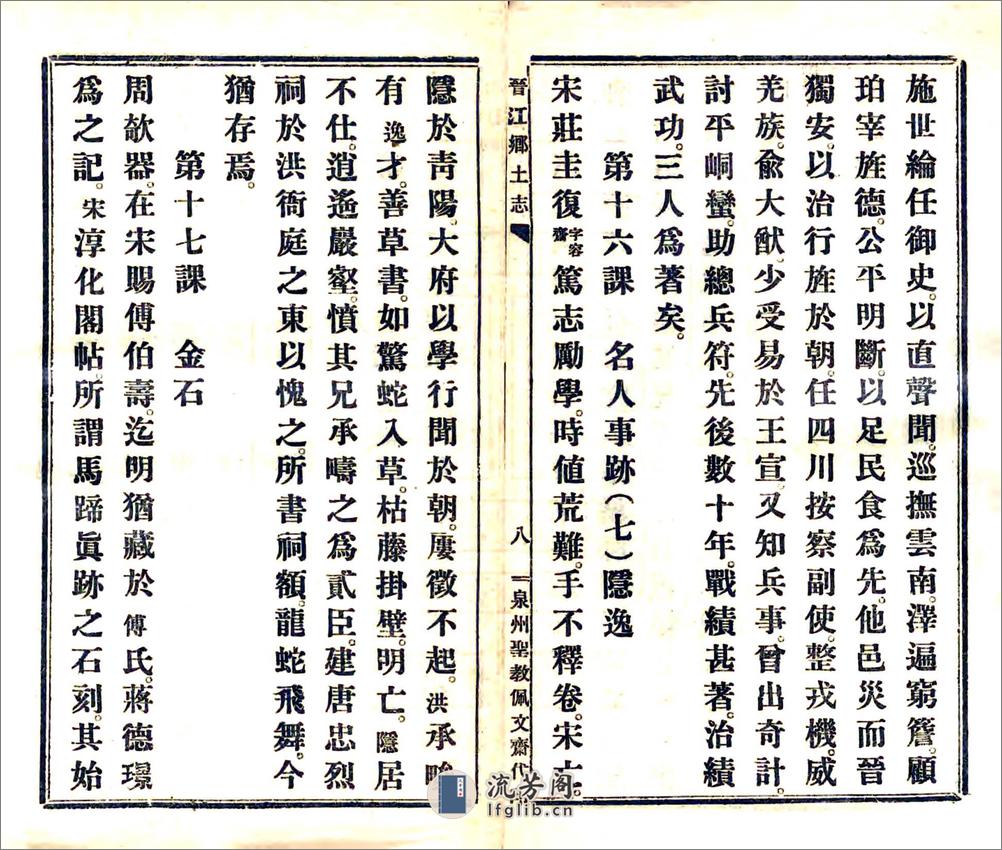 施世綸任御史。以直聲聞。巡撫雲南。澤遍窮簷。顧
珀宰旌德。公平明斷。以足民食爲先。他邑災而晉
獨安。以治行旌於朝。任四川按察副使。整戎機。威
羌族。俞大猷。少受易於王宣。又知兵事。曾出奇計。
討平峒蠻。助總兵符。先後數十年。戰績甚著。治績
武功。三人爲著矣。
第十六課　名人事跡(七)隱逸
宋莊圭復字容齋篤志勵學。時値荒難。手不釋卷。宋亡。
晉江鄉土志
八
泉州聖教佩文齋代
隱於靑陽。大府以學行聞於朝。屢徵不起。洪承畯
有逸才。善草書。如驚蛇入草。枯藤掛壁。明亡。隱居
不仕。逍遙巖壑。憤其兄承疇之爲貳臣。建唐忠烈
祠於洪衙庭之東以愧之。所書祠額。龍蛇飛舞。今
猶存焉。
第十七課　金石
周欹器。在宋賜傅伯壽。迄明猶藏於傅氏。蔣德璟
爲之記。宋淳化閣帖。所謂馬蹄眞跡之石刻。其始
流芳阁
lfglib.cn